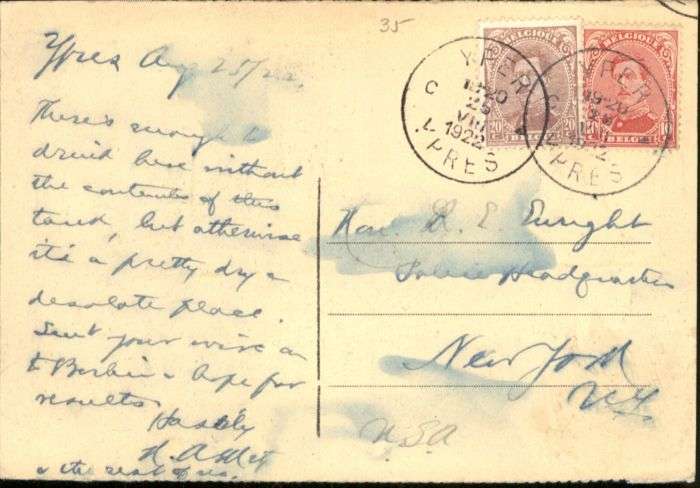 35
Ypres Aug 25/22.
There's enough to
drink here without
the contents of this
tank, but otherwise
it's a pretty dry &
desolate place.
Sent your wire on
to Berlin & hope for
results.
Hastily
& the rest of us.
BELGIQUE
20 20
BELGIË
BELGIQUE
10 10
BELGIË
YPER
19-20
25
VIII
1922
YPRES
C C
YPER
19-20
1922
YPRES
C
Hon. R. E. Enright
Police Headquarters
New York
N.Y.
U.S.A